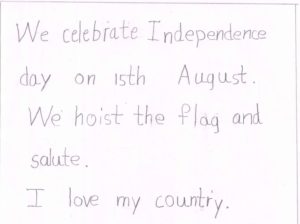 We celebrate Independence
day on 15th August.
We hoist the flag and
salute.
I love my country.